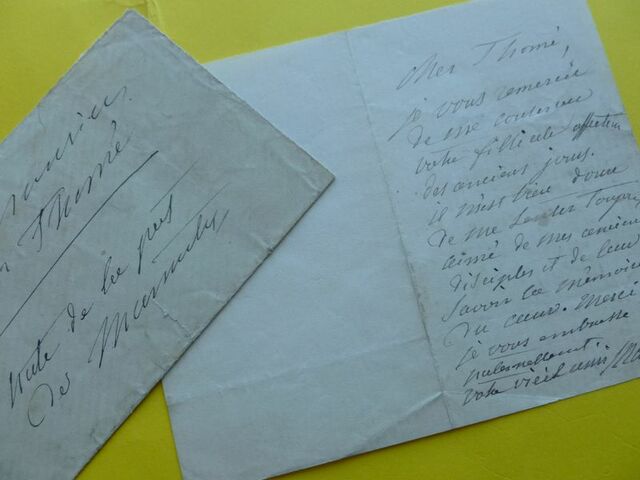 Thomé
de la part
de
Cher Thomé,
je vous remercie
de me conserver
votre filliale affection
des anciens jours.
il m'est bien doux
de me sentir toujours
aimé de mes anciens
disciples et de leur
savoir la mémoire
du cœur. Merci
je vous embrasse
paternellement
votre vieil ami